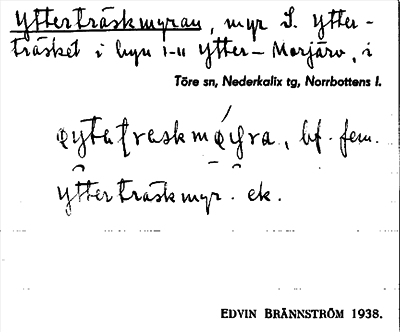 Ytterträskmyran, myr S. Ytter-
träsket i byn i-u Ytter-Morjärv, i
Töre sn, Nederkalix tg, Norrbottens l.
bf. fem.
Ytterträskmyr. ek.
EDVIN BRÄNNSTRÖM 1938.